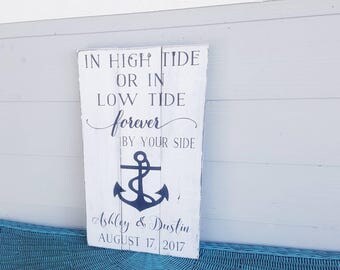 IN HIGH TIDE
OR IN
LOW TIDE
forever
BY YOUR SIDE
Ashley & Dustin
AUGUST 17, 2017